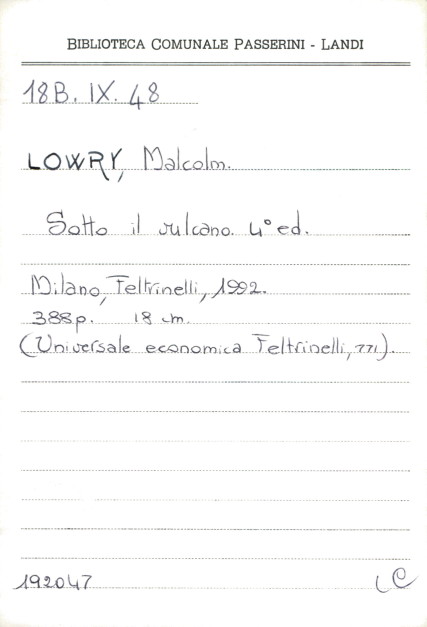 BIBLIOTECA COMUNALE PASSERINI - LANDI
18B. IX. 48
LOWRY, Malcolm.
Sotto il vulcano. 4° ed.
Milano, Feltrinelli, 1992.
388p. 18 cm.
(Universale economica Feltrinelli, 771).
192047
LC